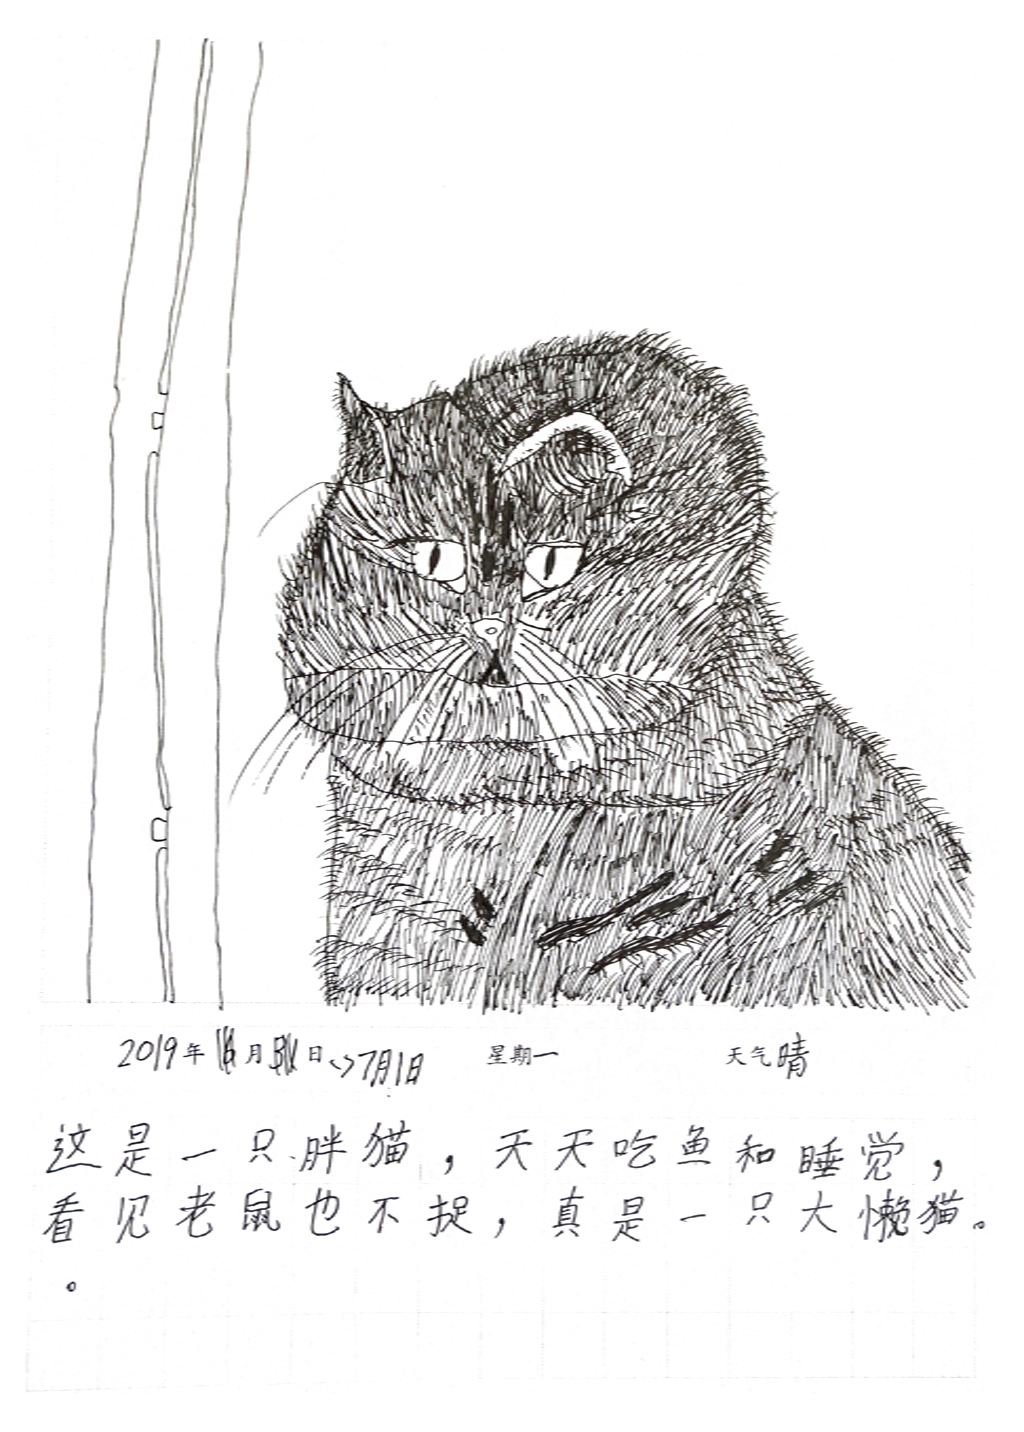 2019年 月 日 7月1日 星期一 天气晴
这是一只胖猫，天天吃鱼和睡觉，
看见老鼠也不捉，真是一只大懒猫。
。